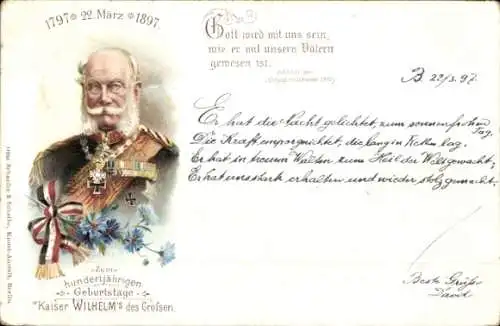 1797 * 22. März * 1897.
Gott wird mit uns sein,
wie er mit unsern Vätern
gewesen ist.
B. 22/3. 97.
Er hat die Nacht gelichtet, zum sonnenfrohen
Tag,
Die Kraft emporgerichtet, die lang in Ketten lag.
Er hat in treuem Walten zum Heil der Welt gewacht;
Er hat uns stark erhalten und wieder stolz gemacht.
Beste Grüße
David
Zum
hundertjährigen
Geburtstage
Kaiser WILHELM's des Großen.
Kunst-Anstalt, Berlin.